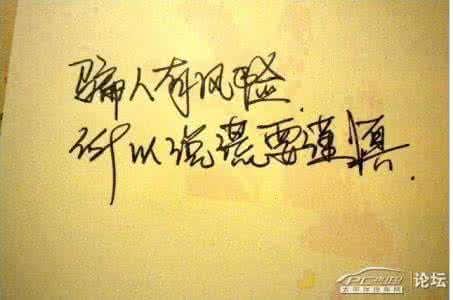 骗人有风险.
所以说谎要谨慎.
PCauto
太平洋汽车网
论坛